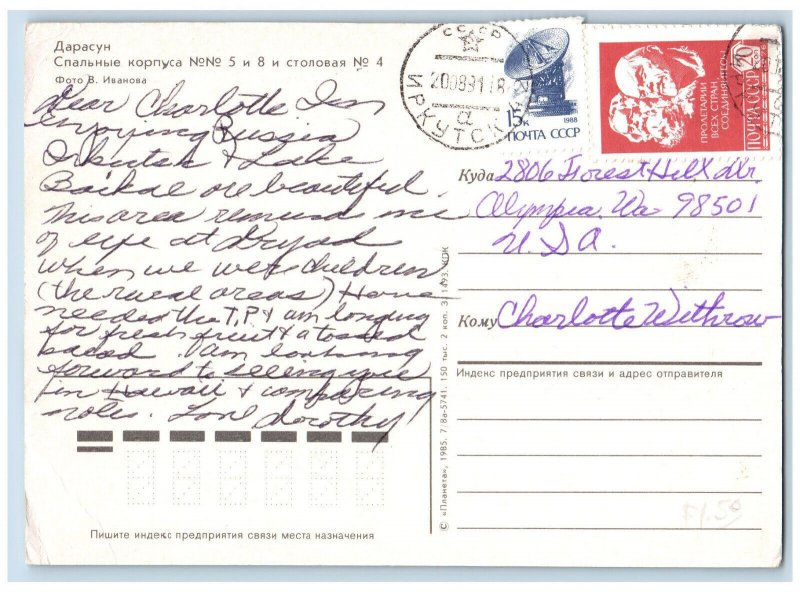 Дарасун
Спальные корпуса №№ 5 и 8 и столовая № 4
Фото В. Иванова
Dear Charlotte I am
enjoying Russia
Irkutsk & Lake
Baikal are beautiful.
This area reminds me
of life at Dryad
when we were children
(the rural areas) Have
needed the T.P. & am longing
for fresh fruit & a tossed
salad. I am looking
forward to seeing you
in Hawaii & comparing
notes. Love Dorothy
Пишите индекс предприятия связи места назначения
© «Планета», 1985. 7/8а-5741. 150 тыс. 2 коп. З. 1493. КПК
СССР
20.08.91 18
ИРКУТСК
15к
1988
ПОЧТА СССР
ПРОЛЕТАРИИ
ВСЕХ СТРАН
СОЕДИНЯЙТЕСЬ
20
ПОЧТА СССР
1976
Куда 2806 Forest Hill Dr.
Olympia, Wa 98501
U.S.A.
Кому Charlotte Withrow
Индекс предприятия связи и адрес отправителя